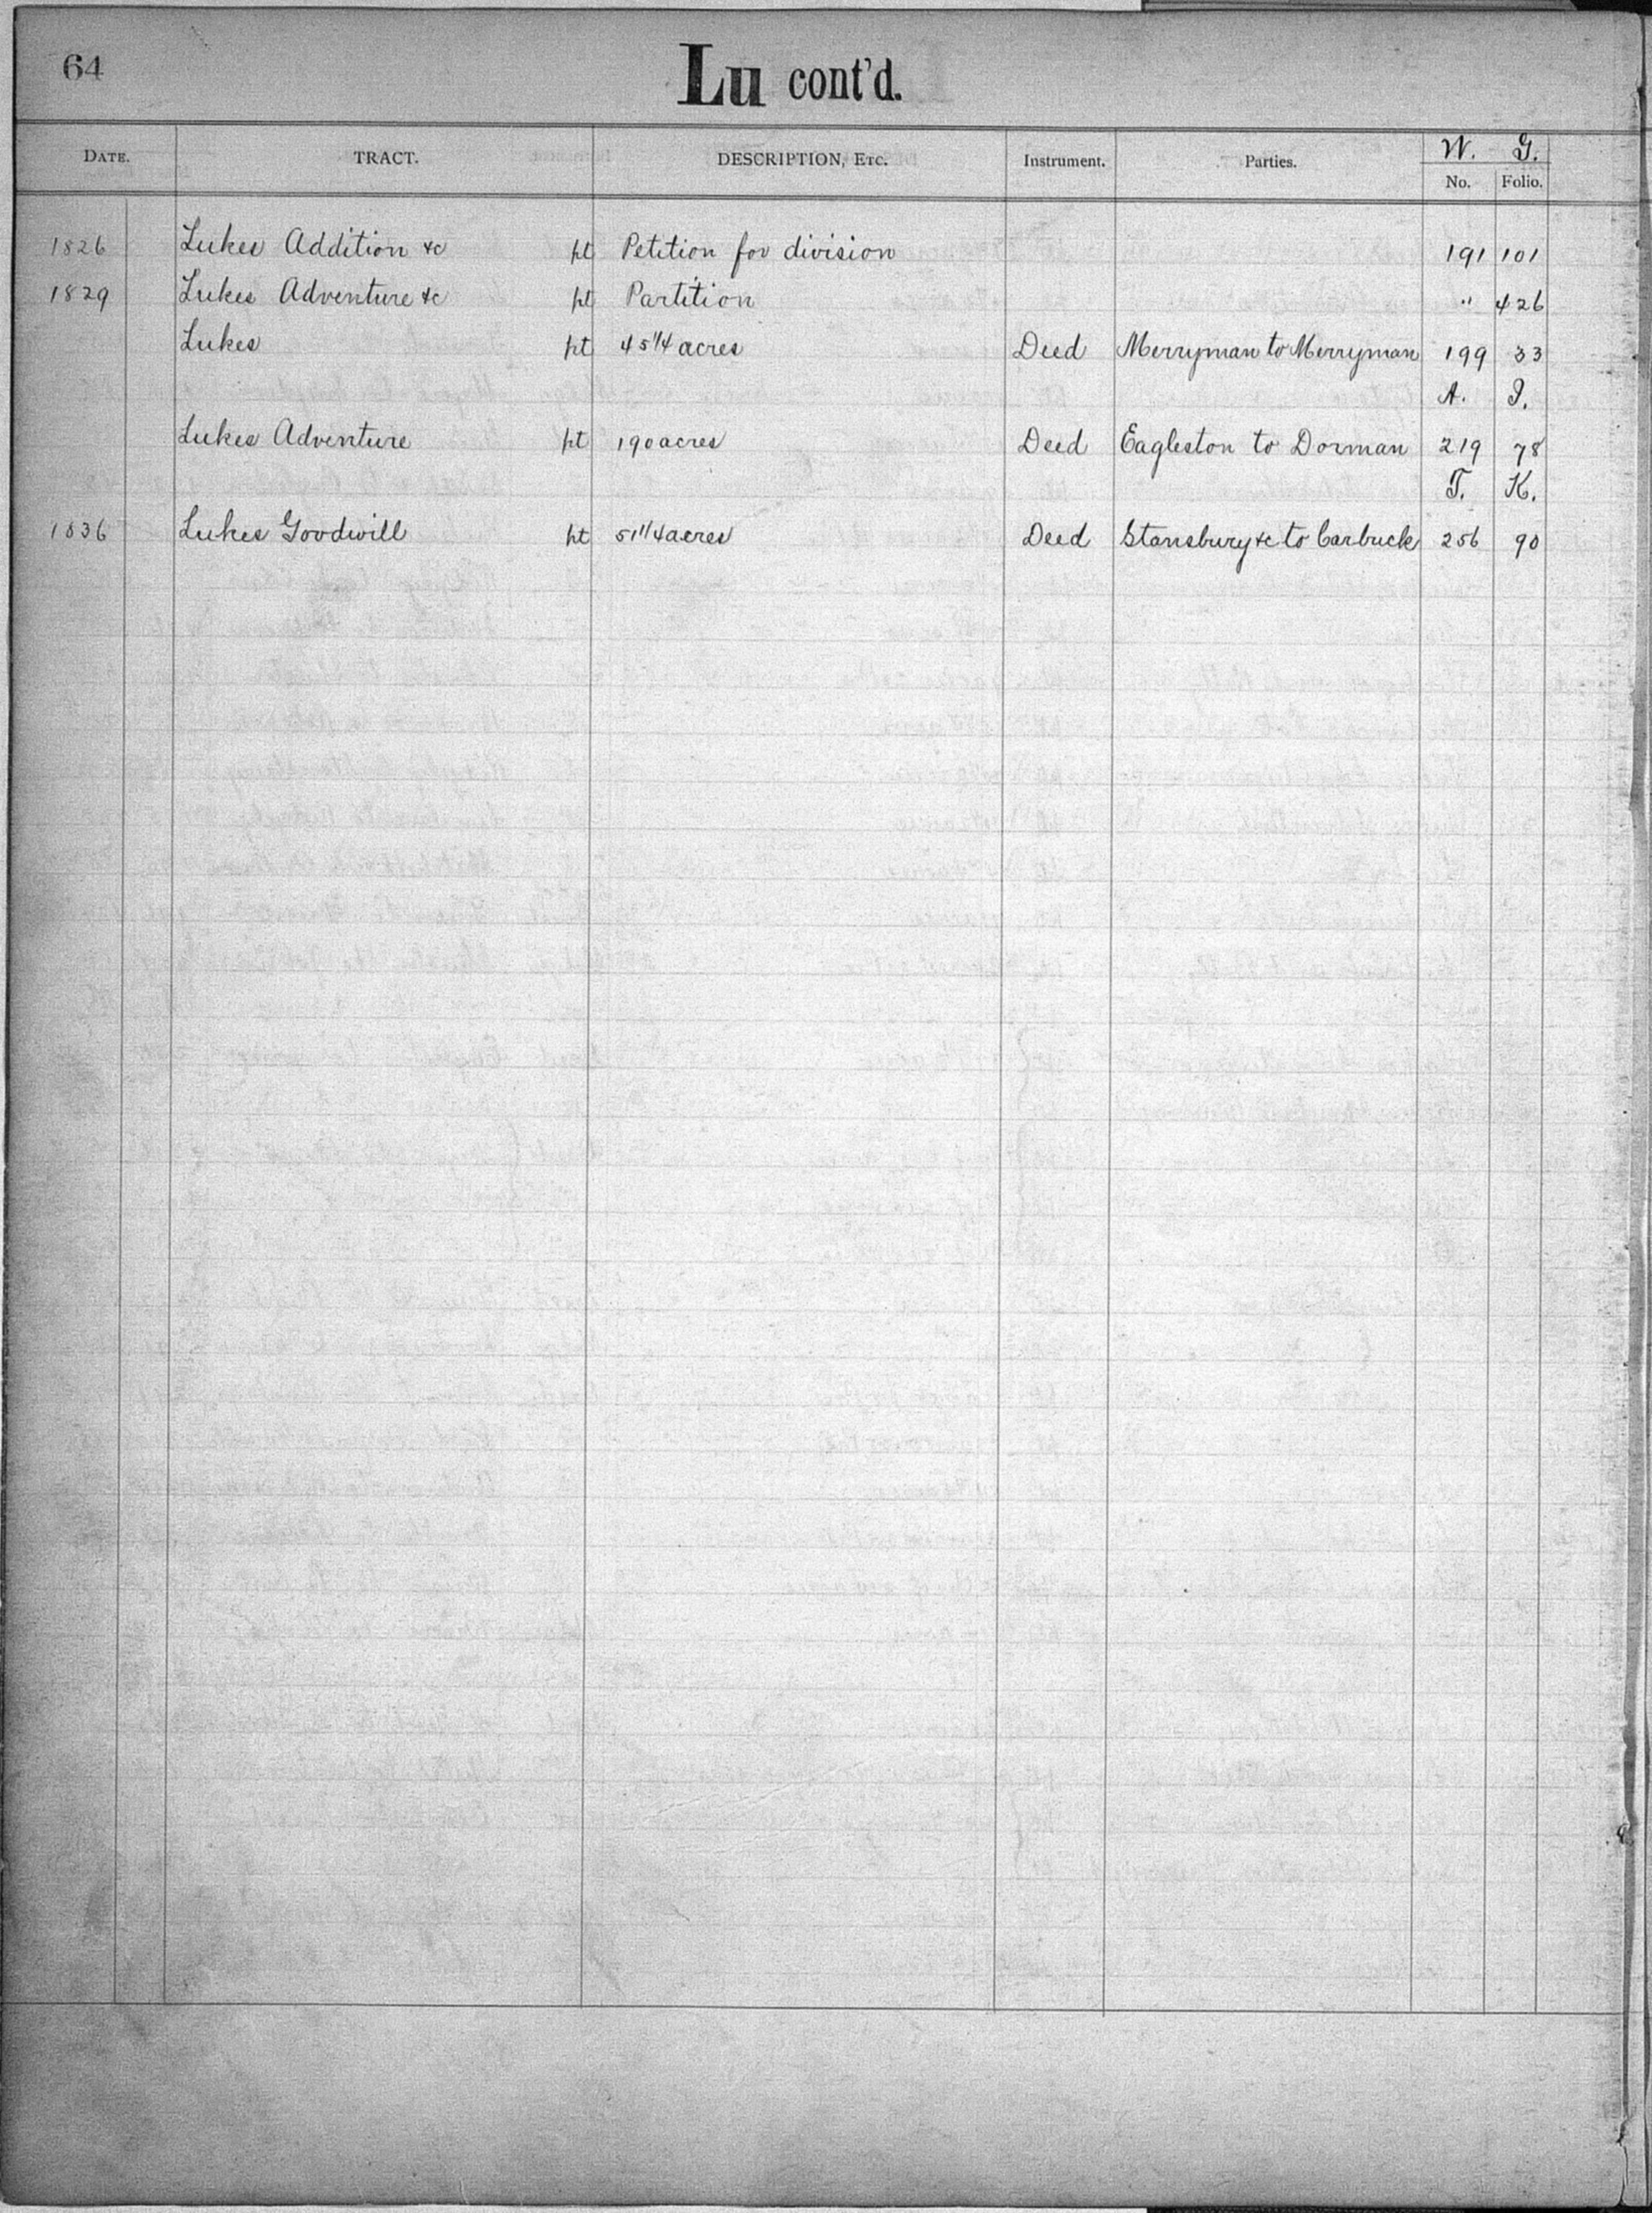 64
Lu cont'd.
DATE. TRACT. DESCRIPTION, ETC. Instrument. Parties. W. G.
No. Folio.
1826 Lukes Addition &c pt Petition for division 191 101
1829 Lukes Adventure &c pt Partition " 426
Lukes pt 45 1/4 acres Deed Merryman to Merryman 199 33
A. I.
Lukes Adventure pt 190 acres Deed Eagleston to Dorman 219 78
T. K.
1836 Lukes Goodwill pt 51 1/4 acres Deed Stansbury &c to Carback 256 90